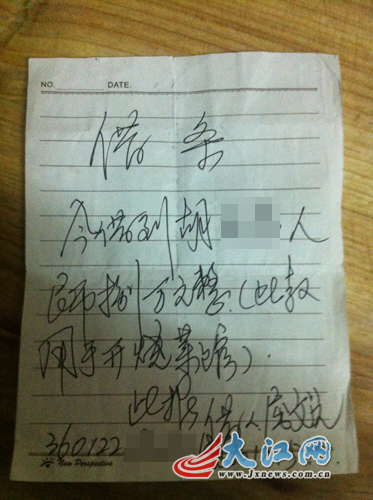 NO. DATE.
借条
今借到胡 人
民币捌万元整.(此款
用于开烧菜馆).
此据 借
360122
New Perspective
大江网
www.jxnews.com.cn